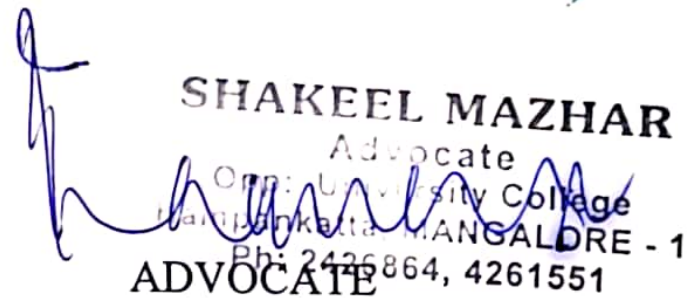 SHAKEEL MAZHAR
Advocate
Opp: University College
Hampankatta, MANGALORE - 1
Ph: 2426864, 4261551
ADVOCATE